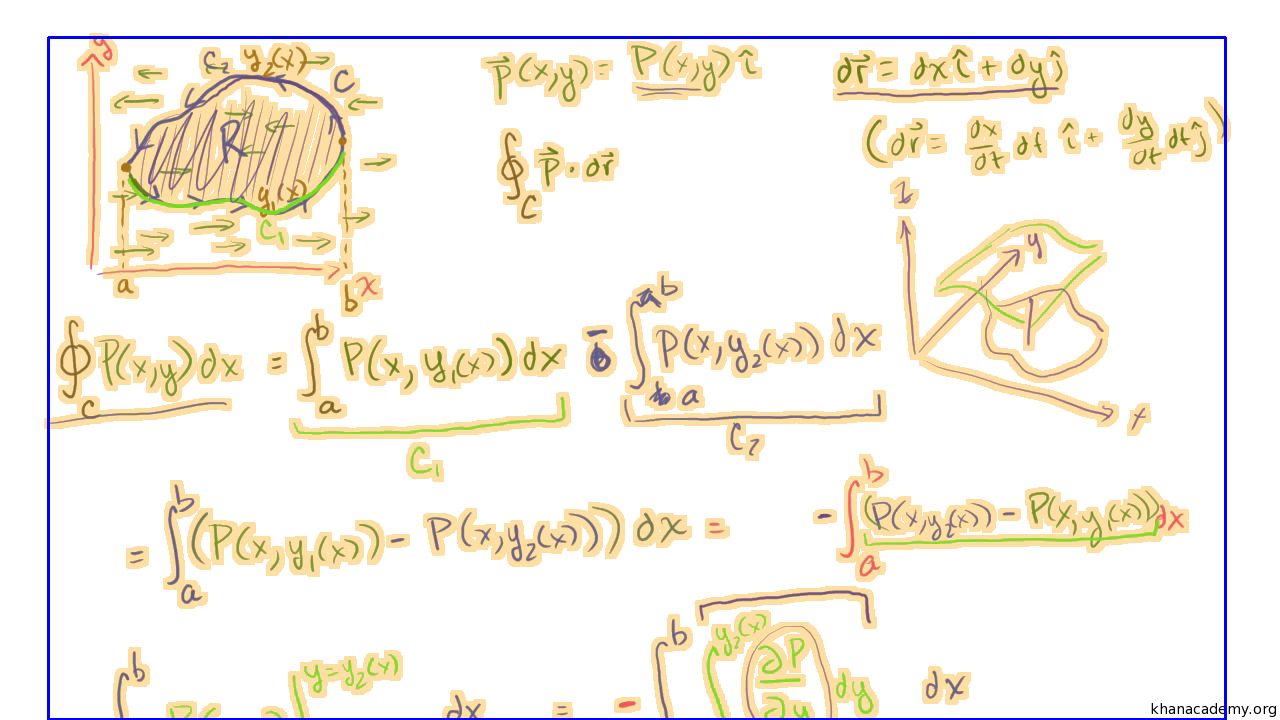 y
C₂ y₂(x)
C
R
y₁(x)
C₁
a
b x
P⃗(x,y) = P(x,y) î
∮_C P⃗ · dr⃗
dr⃗ = dx î + dy ĵ
(dr⃗ = dx/dt dt î + dy/dt dt ĵ)
z
y
x
∮_C P(x,y) dx = ∫_a^b P(x, y₁(x)) dx - ∫_a^b P(x, y₂(x)) dx
C₁
C₂
= ∫_a^b (P(x, y₁(x)) - P(x, y₂(x))) dx = - ∫_a^b (P(x, y₂(x)) - P(x, y₁(x))) dx
b y = y₂(x) dx = - ∫^b ∫^y₂(x) ∂P/∂y dy dx
khanacademy.org